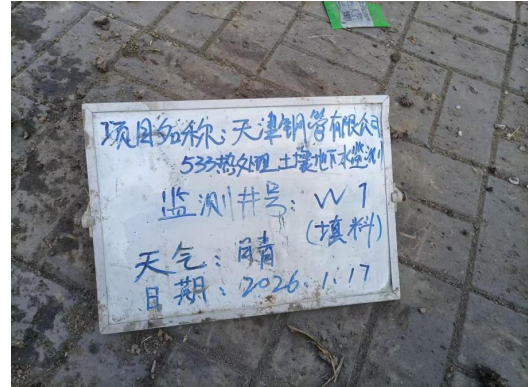 项目名称:天津钢管有限公司
533热处理土壤地下水监测
监测井号:W1
(填料)
天气:晴
日期:2026.1.17